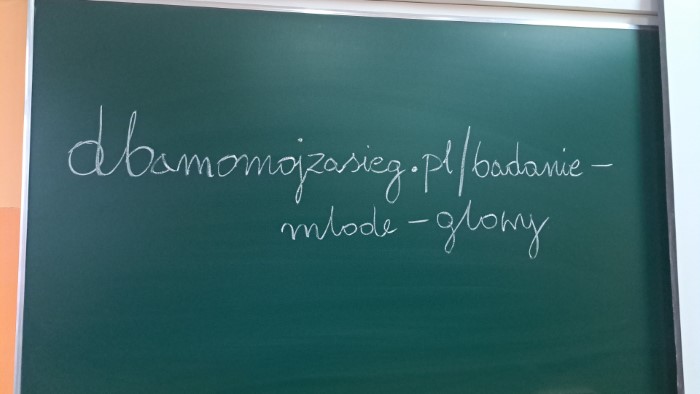 dbamomojzasieg.pl/badanie-
mlode-glowy